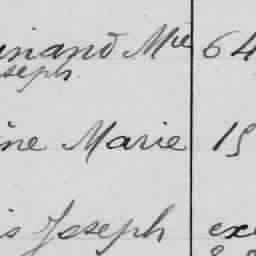 inand Mie 64
seph
ine Marie 15
is Joseph exe